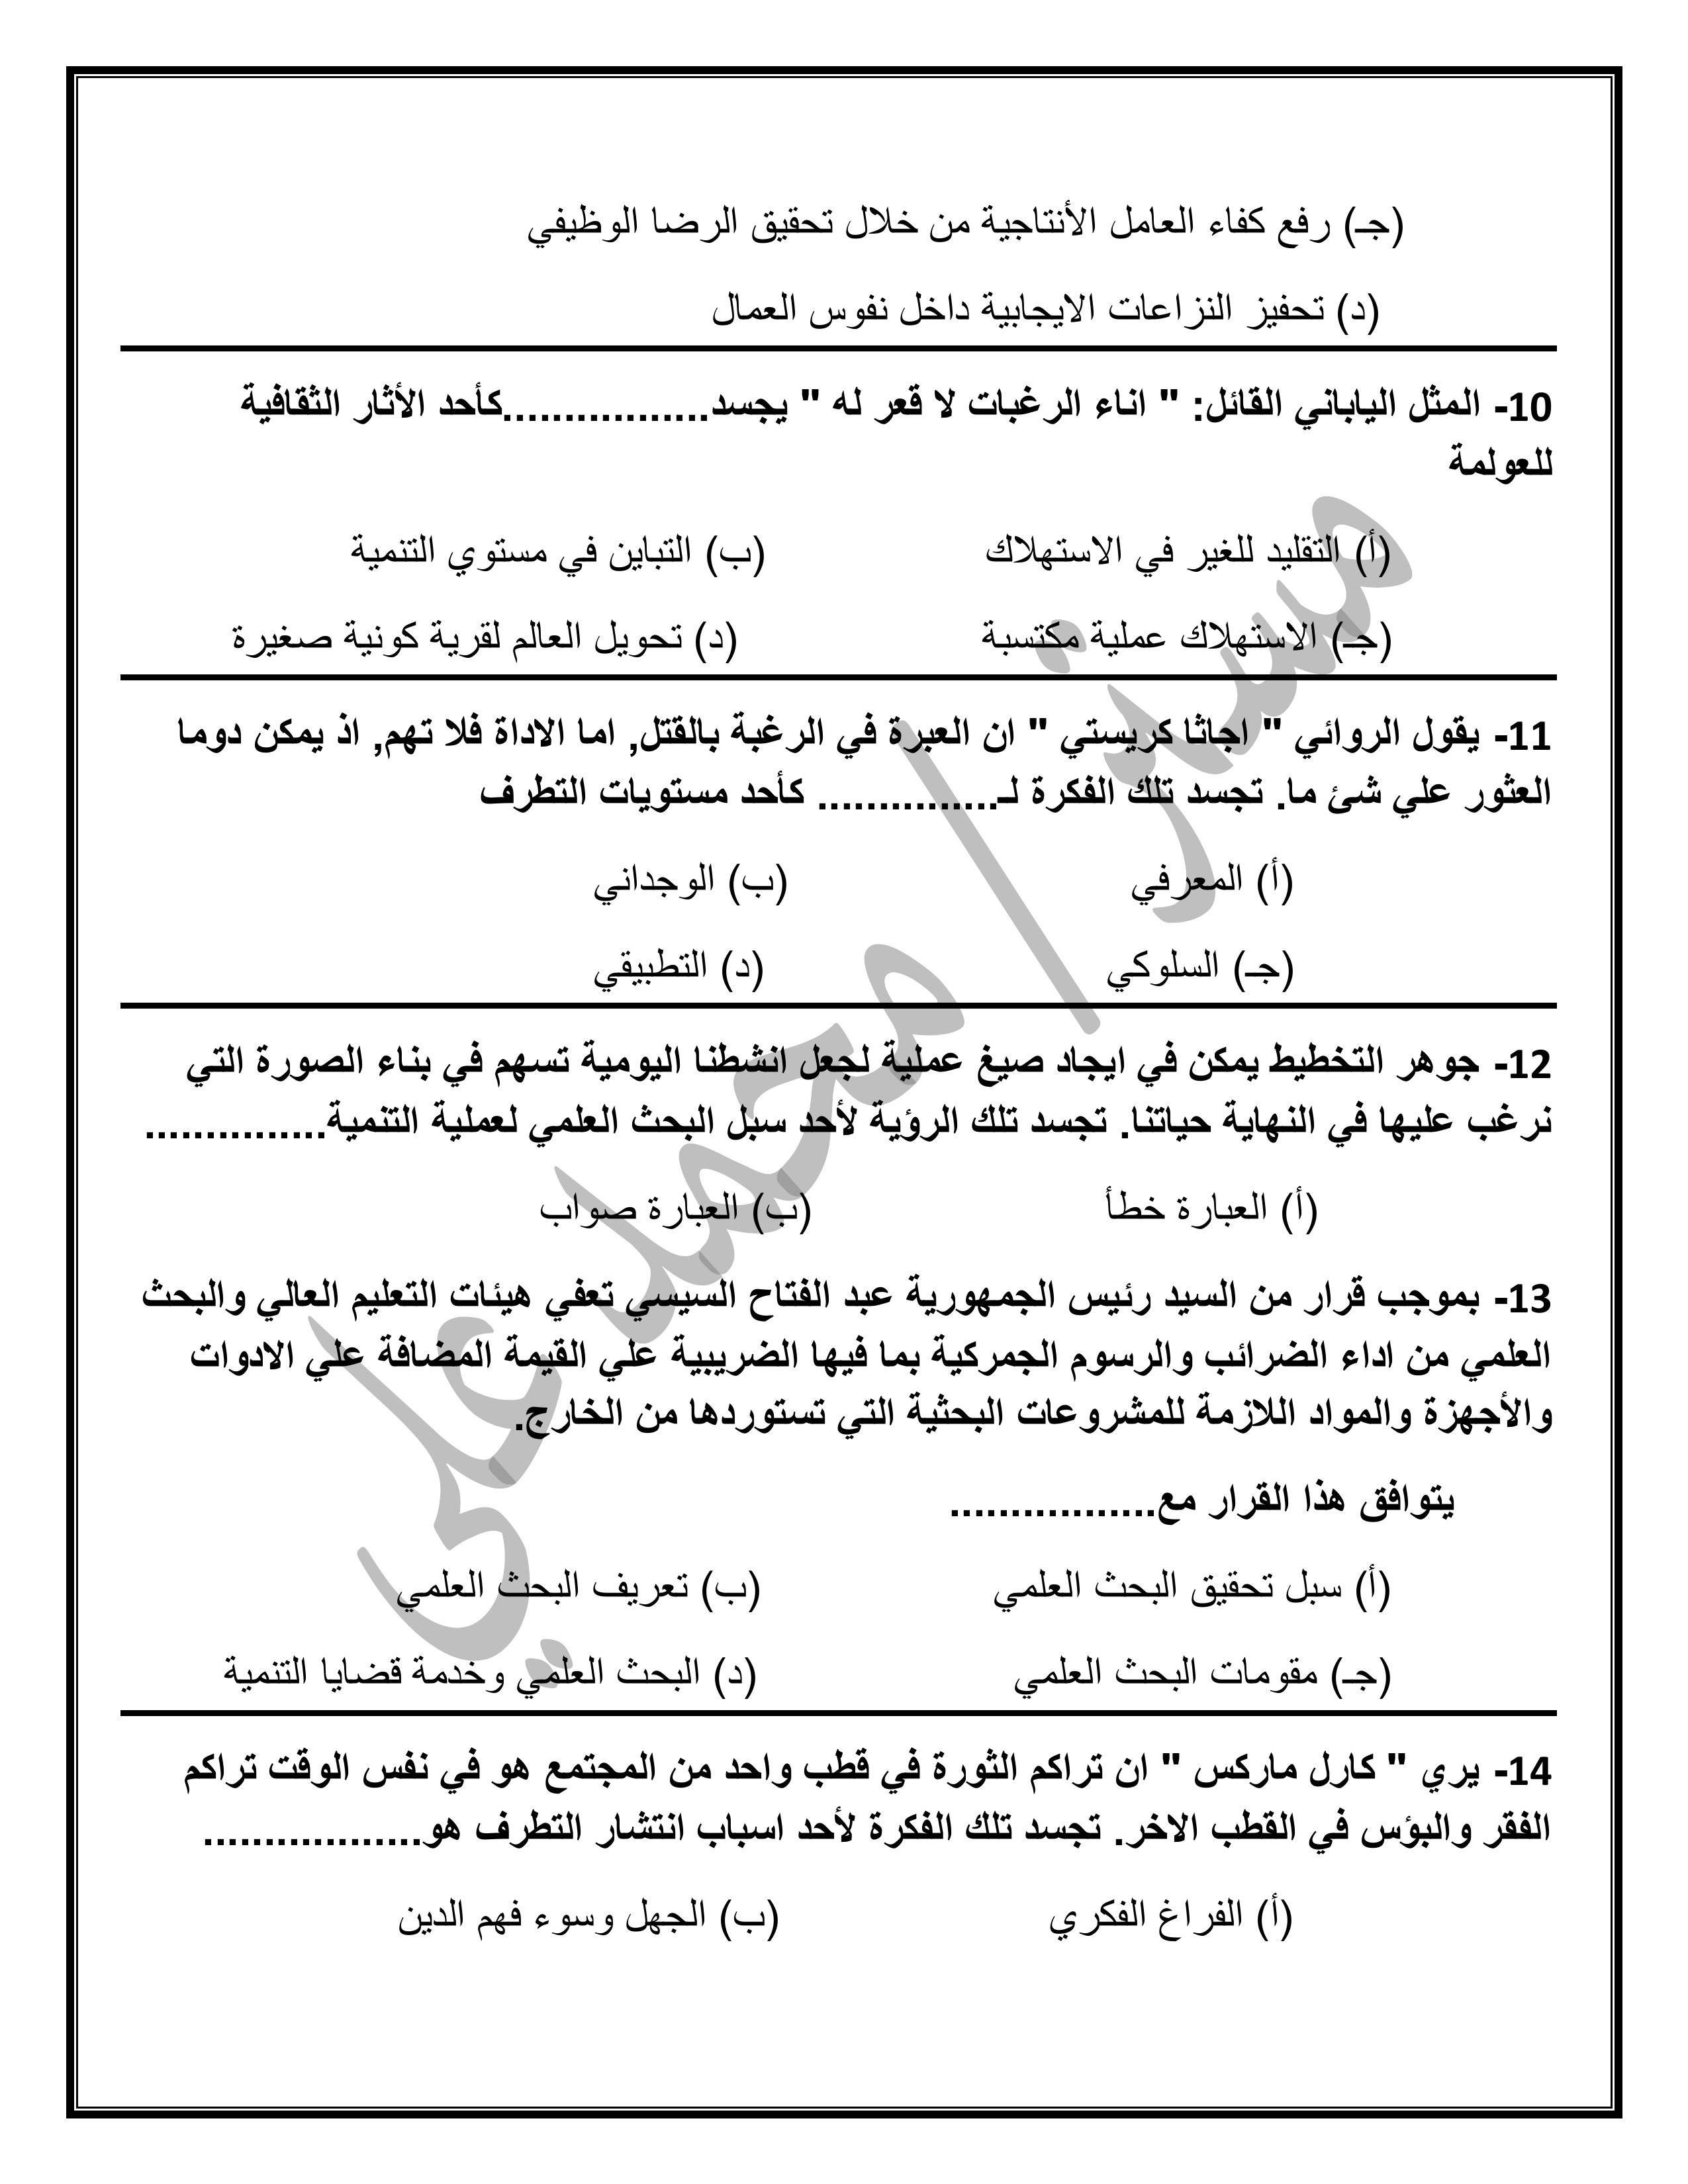 (جـ) رفع كفاء العامل الأنتاجية من خلال تحقيق الرضا الوظيفي
(د) تحفيز النزاعات الايجابية داخل نفوس العمال
10- المثل الياباني القائل: " اناء الرغبات لا قعر له " يجسد.................كأحد الأثار الثقافية
للعولمة
(أ) التقليد للغير في الاستهلاك (ب) التباين في مستوي التنمية
(جـ) الاستهلاك عملية مكتسبة (د) تحويل العالم لقرية كونية صغيرة
11- يقول الروائي " اجاثا كريستي " ان العبرة في الرغبة بالقتل, اما الاداة فلا تهم, اذ يمكن دوما
العثور علي شئ ما. تجسد تلك الفكرة لـ............... كأحد مستويات التطرف
(أ) المعرفي (ب) الوجداني
(جـ) السلوكي (د) التطبيقي
12- جوهر التخطيط يمكن في ايجاد صيغ عملية لجعل انشطنا اليومية تسهم في بناء الصورة التي
نرغب عليها في النهاية حياتنا. تجسد تلك الرؤية لأحد سبل البحث العلمي لعملية التنمية...............
(أ) العبارة خطأ (ب) العبارة صواب
13- بموجب قرار من السيد رئيس الجمهورية عبد الفتاح السيسي تعفي هيئات التعليم العالي والبحث
العلمي من اداء الضرائب والرسوم الجمركية بما فيها الضريبية علي القيمة المضافة علي الادوات
والأجهزة والمواد اللازمة للمشروعات البحثية التي تستوردها من الخارج.
يتوافق هذا القرار مع.................
(أ) سبل تحقيق البحث العلمي (ب) تعريف البحث العلمي
(جـ) مقومات البحث العلمي (د) البحث العلمي وخدمة قضايا التنمية
14- يري " كارل ماركس " ان تراكم الثورة في قطب واحد من المجتمع هو في نفس الوقت تراكم
الفقر والبؤس في القطب الاخر. تجسد تلك الفكرة لأحد اسباب انتشار التطرف هو..................
(أ) الفراغ الفكري (ب) الجهل وسوء فهم الدين
مستر / محمد علي